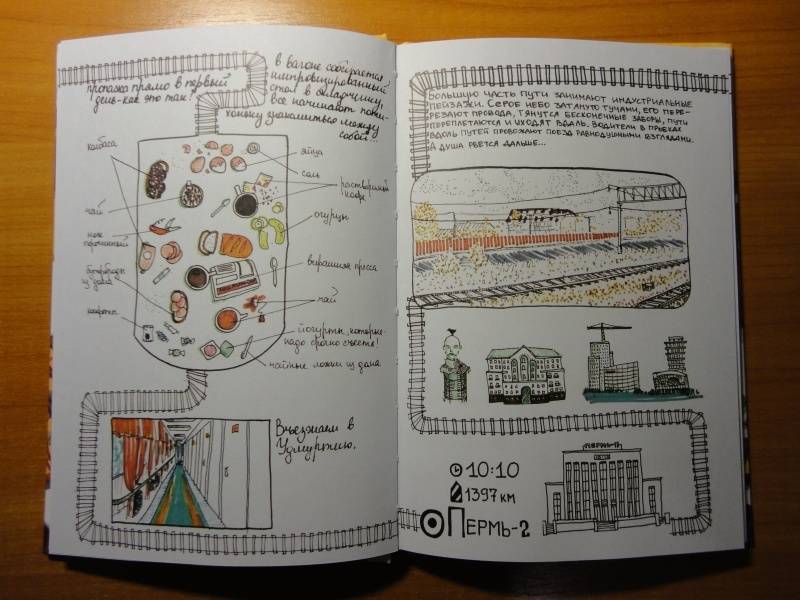 пропажа прямо в первый
день-как это так!
в вагоне собирается
импровизированный
стол в складчину,
все начинают поти-
хоньку знакомиться между
собой
колбаса
чай
нож
перочинный
бутерброды
из дома
конфеты
яйца
соль
растворимый
кофе
огурцы
вчерашняя пресса
чай
йогурты, которые
надо срочно съесть!
чайные ложки из дома
Въезжаем в
Удмуртию.
Большую часть пути занимают индустриальные
пейзажи. Серое небо затянуто тучами, его пере-
резают провода, тянутся бесконечные заборы, пути
переплетаются и уходят вдаль. Водители в пробках
вдоль путей провожают поезд равнодушными взглядами.
А душа рвется дальше...
10:10
1397 км
Пермь-2